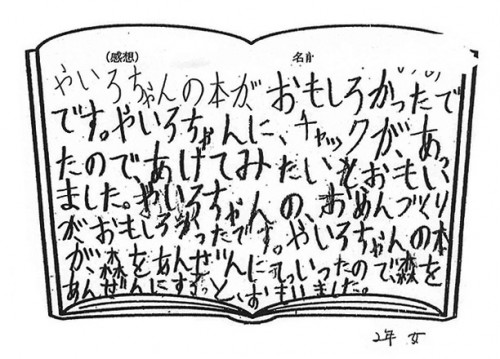 (感想) 名
やいろちゃんの本が、おもしろかったで
です。やいろちゃんに、チャックが、あっ
たので、あけてみたいとおもい
ました。やいろちゃんの、おめんづくり
がおもしろかったです。やいろちゃんの本
が、森をあんぜんにっていったので、森を
あんぜんにするっと、おもいました。
2年 女